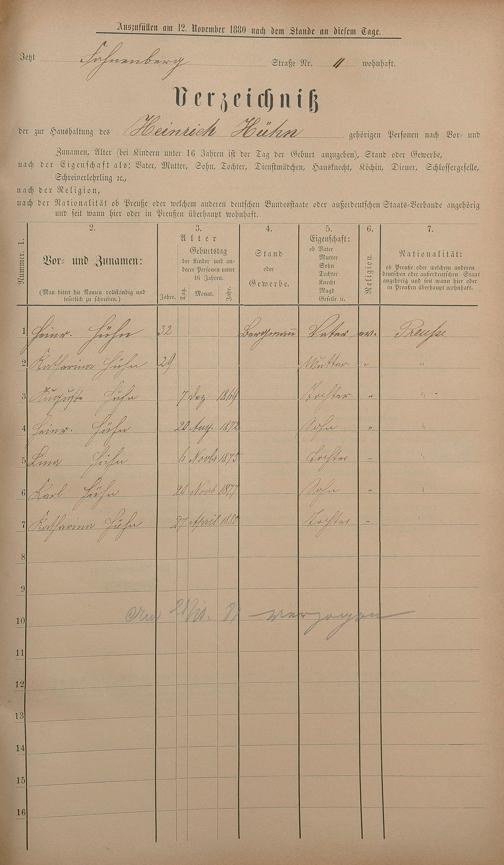 Auszufüllen am 12. November 1880 nach dem Stande an diesem Tage.
Jetzt Hohnenberg Straße Nr. 11 wohnhaft.
Verzeichniß
der zur Haushaltung des Heinrich Hühn gehörigen Personen nach Vor- und
Zunamen, Alter (bei Kindern unter 16 Jahren ist der Tag der Geburt anzugeben), Stand oder Gewerbe,
nach der Eigenschaft als: Vater, Mutter, Sohn, Tochter, Dienstmädchen, Hausknecht, Köchin, Diener, Schlossergeselle,
Schreiverlehrling ꝛc.,
nach der Religion,
nach der Nationalität ob Preuße oder welchem anderen deutschen Bundesstaate oder außerdeutschen Staats-Verbande angehörig
und seit wann hier oder in Preußen überhaupt wohnhaft.
Nummer. 1.
2.
Vor- und Zunamen:
(Man bittet die Namen vollständig und
leserlich zu schreiben.)
3.
Alter
Geburtstag
der Kinder und an-
derer Personen unter
16 Jahren.
Jahre. Tag. Monat. Jahr.
4.
Stand
oder
Gewerbe.
5.
Eigenschaft:
ob Vater
Mutter
Sohn
Tochter
Knecht
Magd
Geselle ꝛc.
6.
Religion.
7.
Nationalität:
ob Preuße oder welchem anderen
deutschen oder außerdeutschen Staat
angehörig und seit wann hier oder
in Preußen überhaupt wohnhaft.
1 Heinr. Hühn 32 Bergmann Vater ev. Preuße
2 Katharina Hühn 29 Mutter " "
3 Auguste Hühn 7 Dez. 1869 Tochter " "
4 Heinr. Hühn 20 Aug. 1872 Sohn " "
5 Lina Hühn 6 Novbr 1875 Tochter " "
6 Karl Hühn 20 Novb 1877 Sohn " "
7 Katharina Hühn 27 April 1880 Tochter "
8
9
10 verzogen
11
12
13
14
15
16